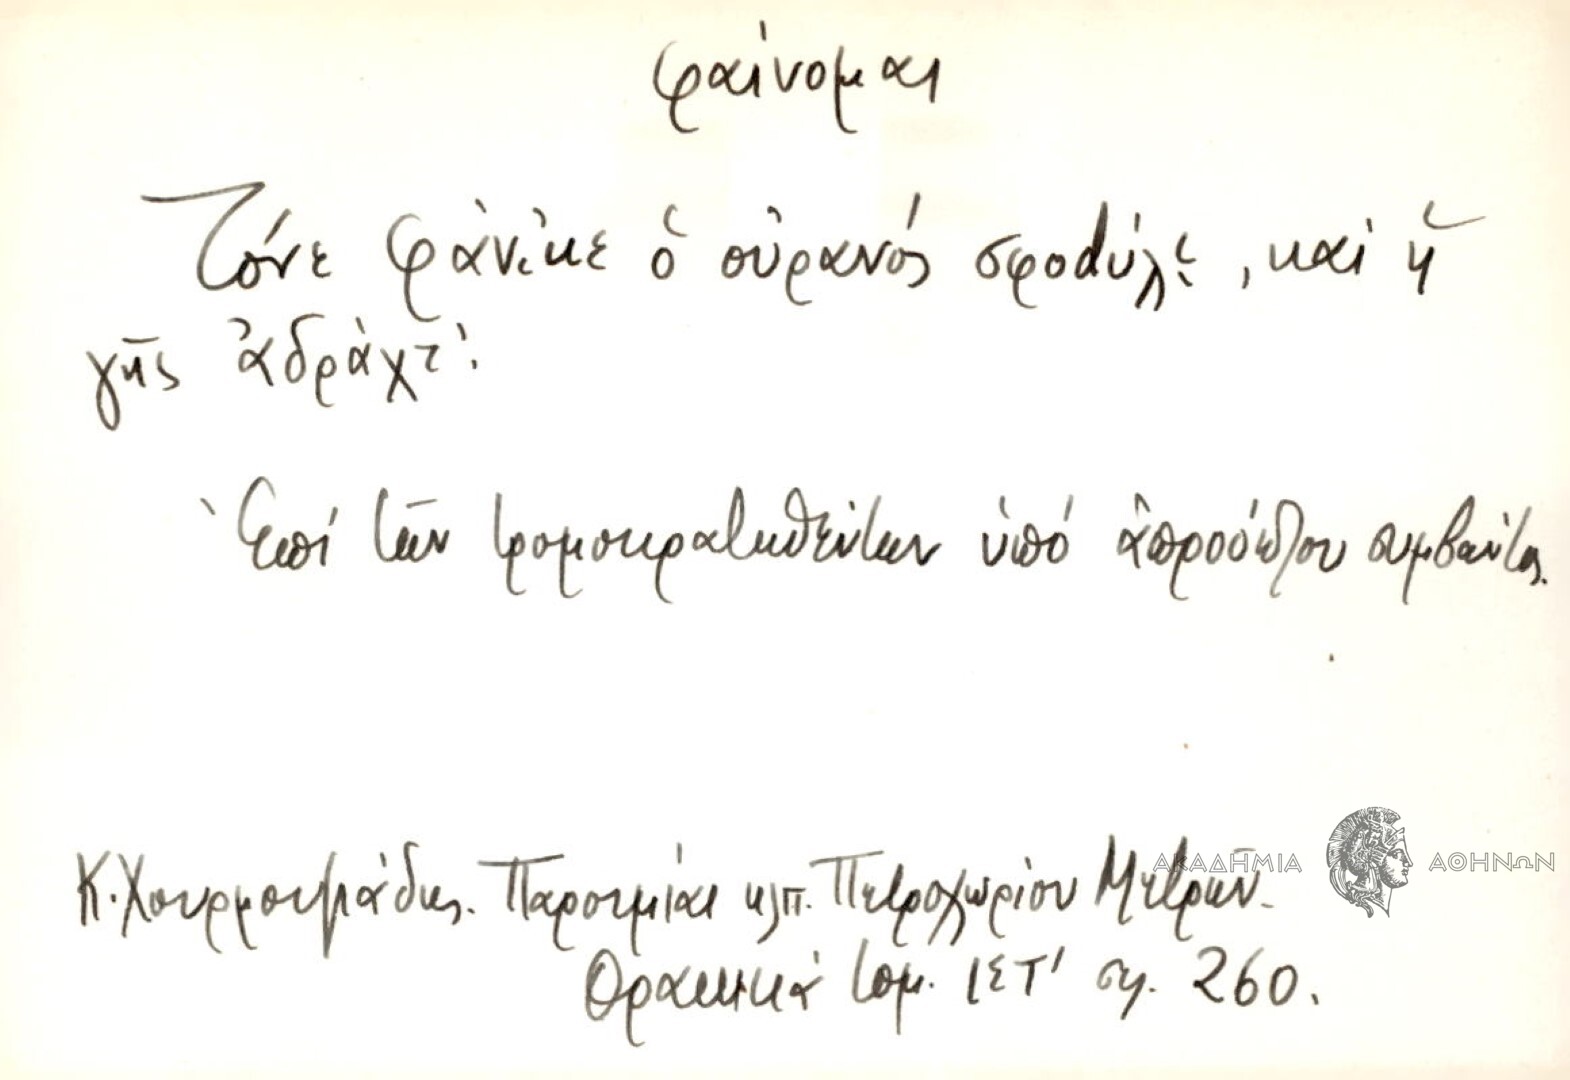 φαίνομαι
Τόνε φάνικε ὁ οὐρανός σφοdύλι, καί ἡ
γῆς ἀδράχτι.
Ἐπί τῶν τρομοκρατηθέντων ὑπό ἀπροόπτου συμβάντος.
Κ. Χουρμουζιάδης. Παροιμίαι κλπ. Πετροχωρίου Μετρῶν.
Θρακικά τομ. ΙΣΤ' σ. 260.
ΑΚΑΔΗΜΙΑ ΑΘΗΝΩΝ